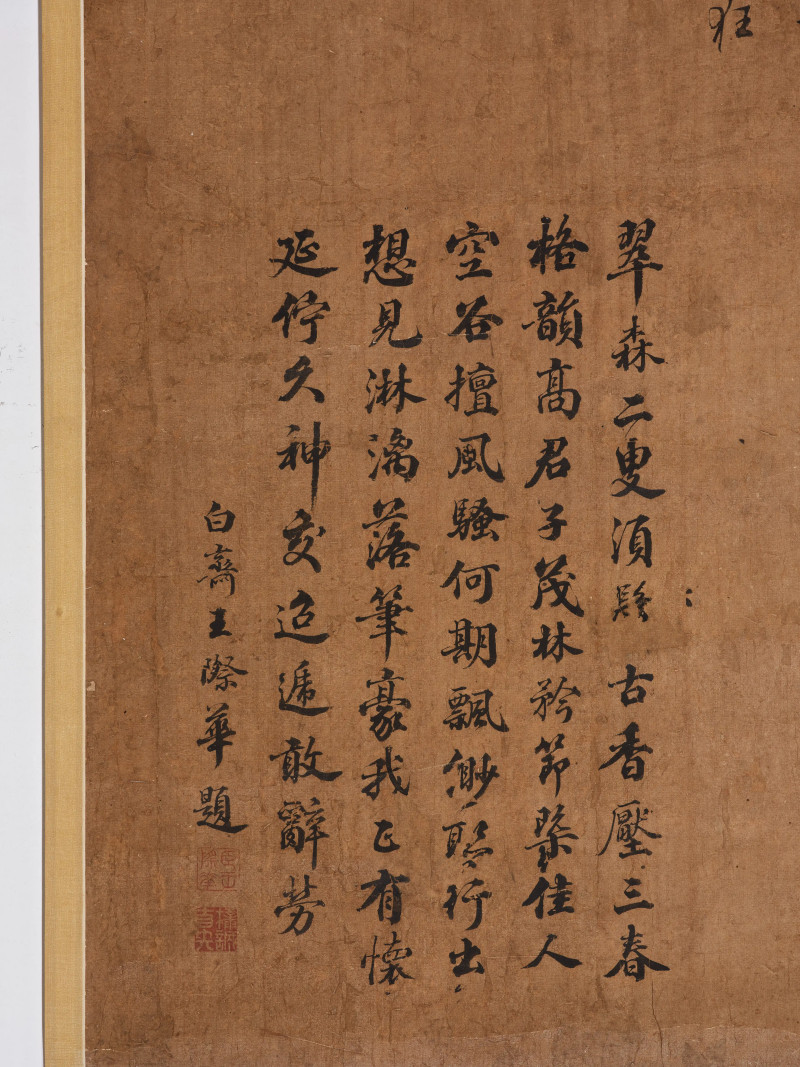 狂
翠森二叟須古香壓三春
格韻高君子茂林矜節槩佳人
空谷擅風騷何期飄緲聯行出
想見淋漓落筆豪我正有懷
延佇久神交迢遞敢辭勞
白齋王際華題